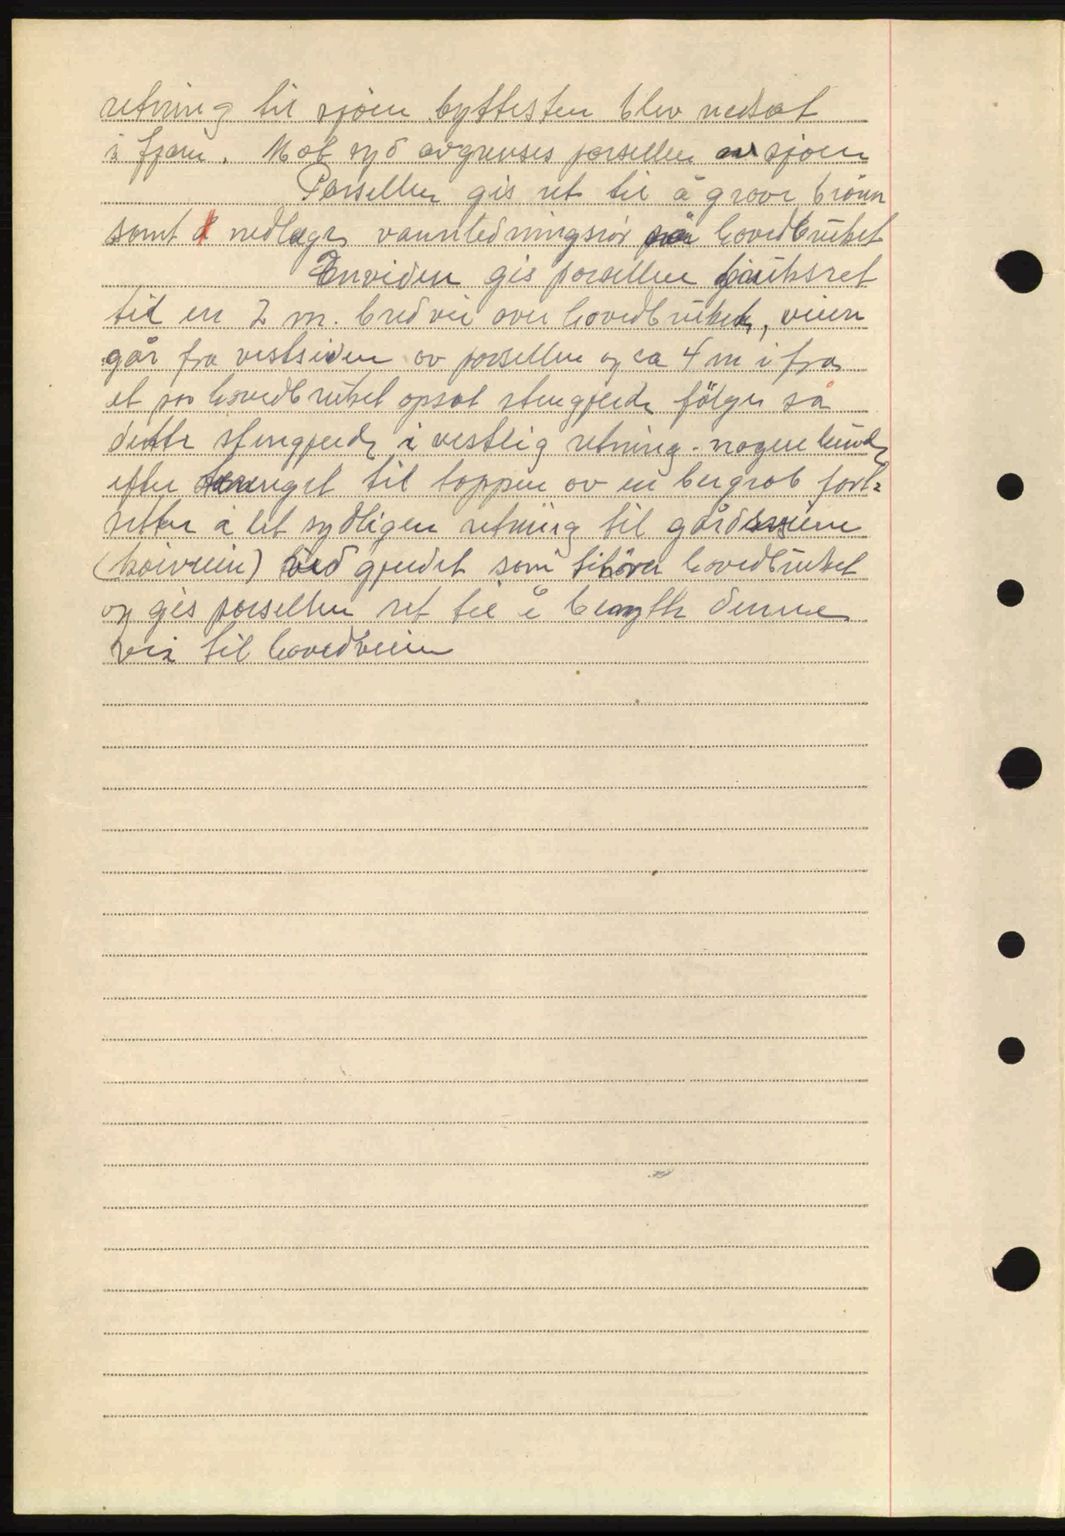 retning til sjøen byttesten blev nedsat
i fjæren. Mot syd avgrenses parsellen av sjøen
Parsellen gis ret til å grave brønn
samt å nedlegge vannledningsrør på hovedbruket
Enviden gis parsellen bruksret
til en 2 m. bred vei over hovedbruket, veien
går fra vestsiden av parsellen og ca 4 m i fra
et på hovedbruket opsat stengjerde følger så
dette stengjerde i vestlig retning. nogenlunde
efter terenget til toppen av en bergrab fort=
setter i let sydligen retning til gårdsveien
(høivein) ved gjerdet som tihører hovedbruket
og gis parsellen ret til å benytte denne
vei til hovedveien